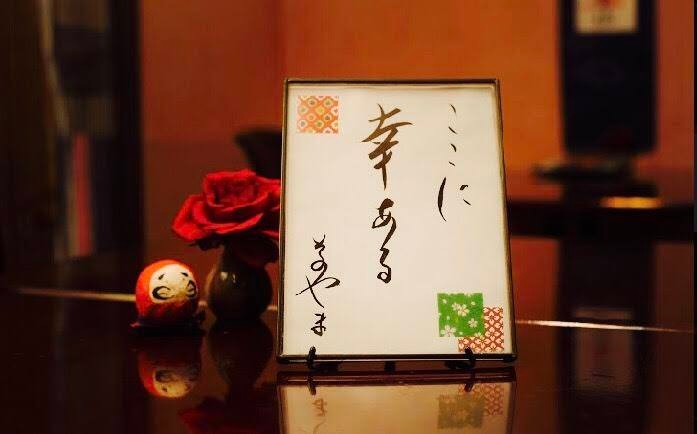 ここに
幸ある
なやま